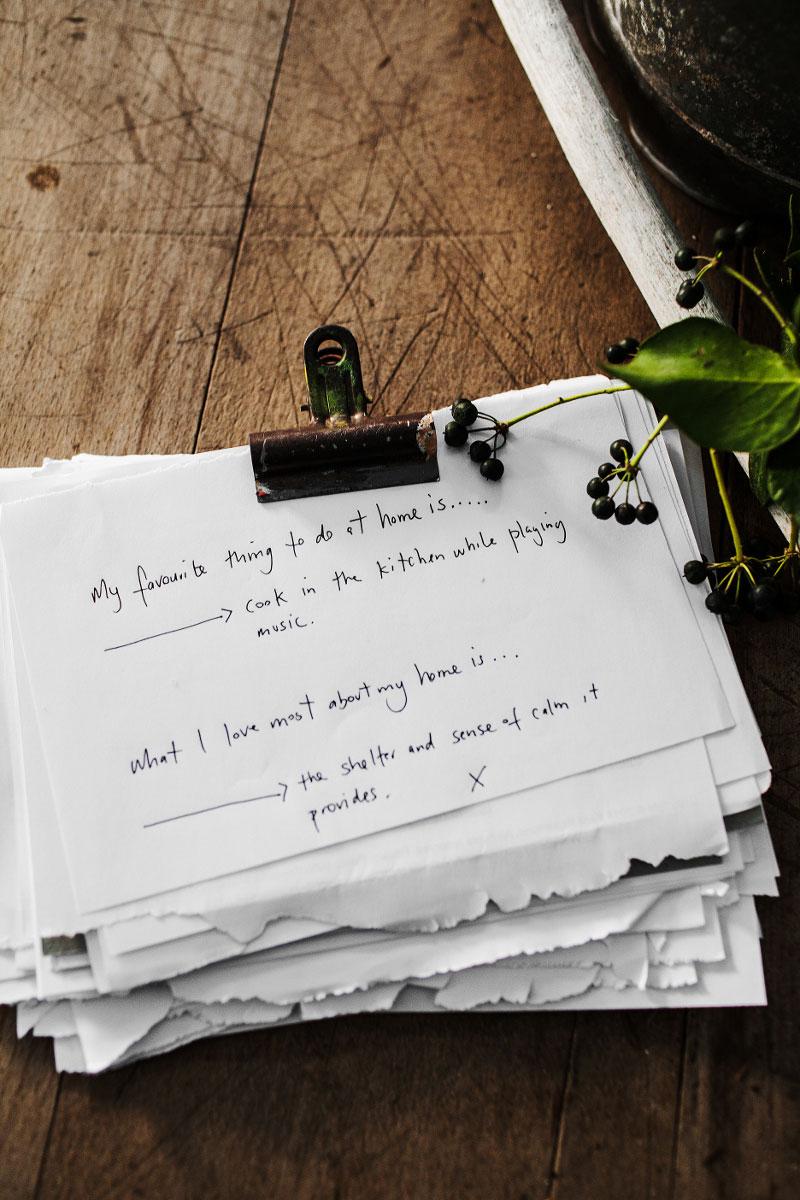 My favourite thing to do at home is.....
⟶ cook in the kitchen while playing
music.
What I love most about my home is...
⟶ the shelter and sense of calm it
provides.
X